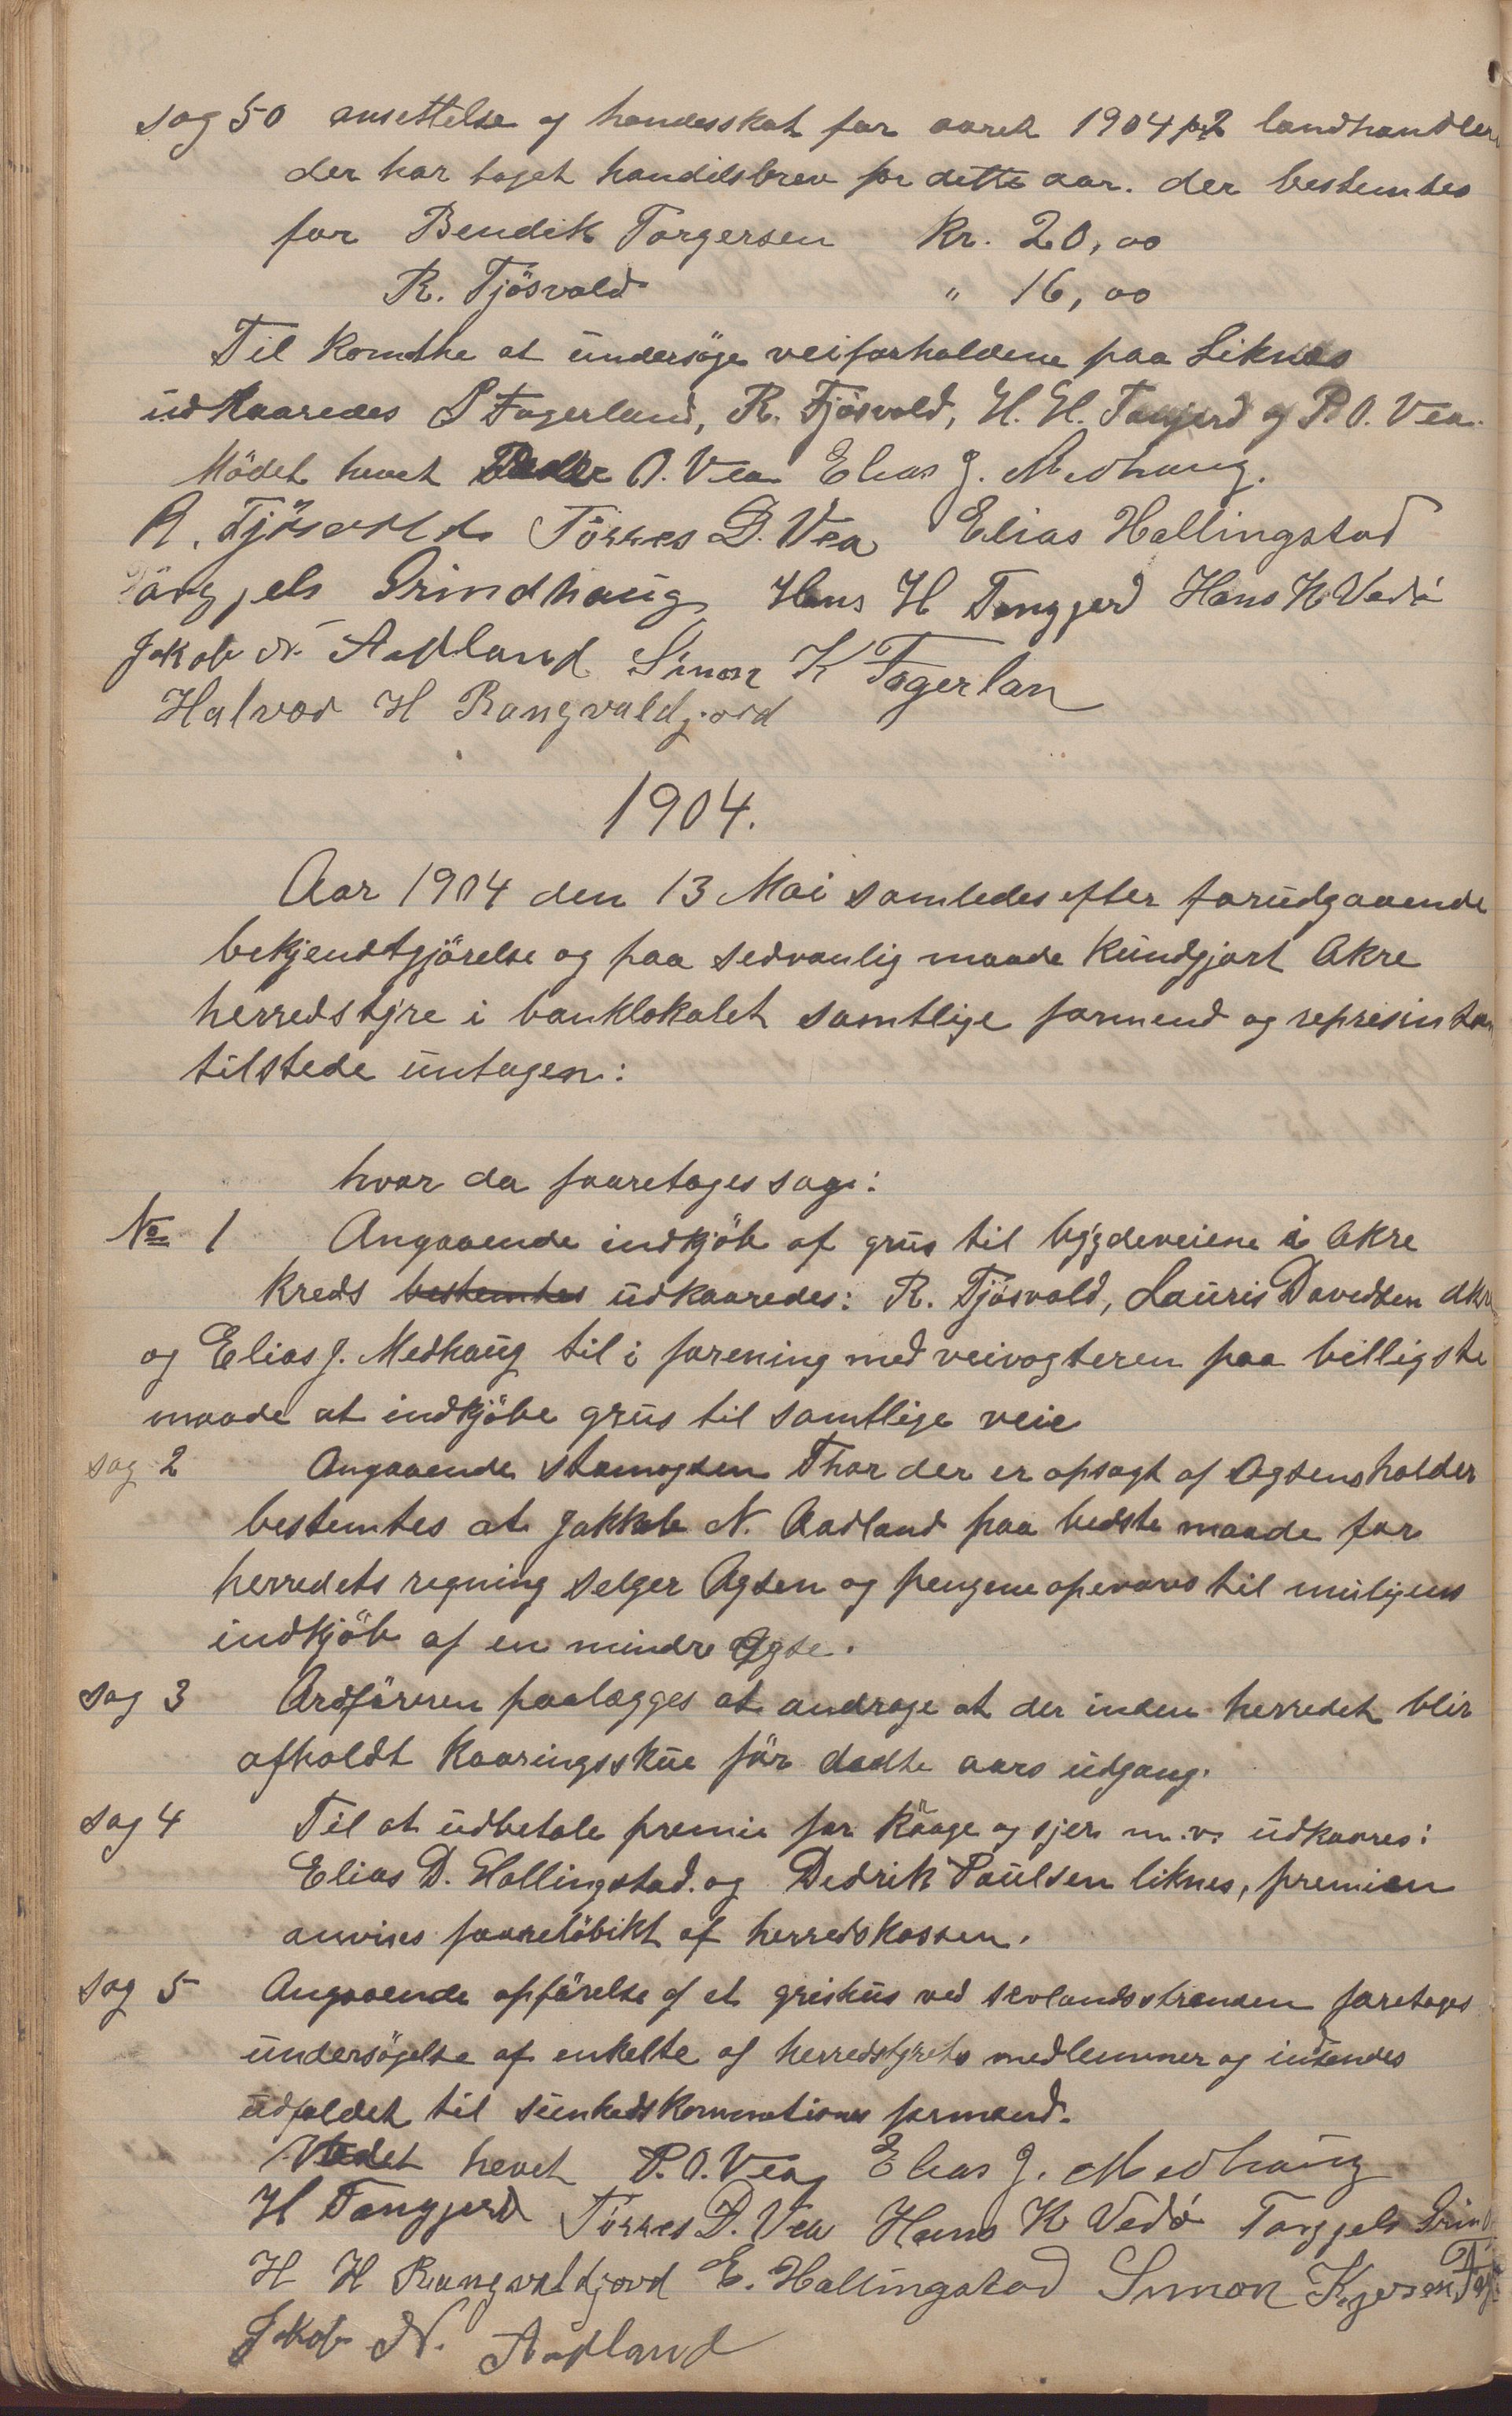 sag 50 ansettelse af handesskat for aaret 1904 for 2 landhandler
der har taget handelsbrev for dette aar. der bestemtes
for Bendik Torgersen Kr. 20,00
R. Tjösvold " 16,00
Til Komthe at undersöge veiforholdene paa Liknes
udkaaredes S Fagerland, R. Tjösvold, H. H. Tangjerd og P. O. Vea.
Mödet hevet Peder O. Vea Elias J. Medhaug.
R. Tjösvold Törres D. Vea Elias Hallingstad
Torgjels Grindhaug Hans H Tangjerd Hans K Vedö
Jakob N. Aadland Simon K Fagerlan
Halvor H Rangvaldjord
1904.
Aar 1904 den 13 Mai samledes efter forudgaaende
bekjendtgjörelse og paa sedvanlig maade kundgjort Akre
herredstyre i banklokalet samtlige formend og represintan
tilstede untagen:
hvor da faaretages sage:
No 1 Angaaende indkjöb af grus til bygdeveiene i Akre
kreds bestemtes udkaaredes: R. Tjösvold, Lauris Davedsen Akre
og Elias J. Medhaug til i forening med veivogteren paa billigste
maade at indkjöbe grus til samtlige veie
sag 2 Angaaende stamogsen Thor der er opsagt af Ogsensholder
bestemtes at Jakkob N. Aadland paa bedste maade for
herredets regning selger Ogsen og pengene opevares til muligens
indkjöb af en mindre Ogse.
sag 3 Ordföreren paalægges at andrage at der inden herredet blir
afholdt Kaaringsskue för dedte aars udgang.
sag 4 Til at udbetale premie for Kraage og sjer m.v. udkaares:
Elias D. Hallingstad. og Dedrik Paulsen liknes, premien
anvises faarelöbikt af herredskassen.
sag 5 Angaaende opförelse af et grishus ved sevlandsstranden foretages
undersögelse af enkelte af herredstyrets medlemmer og indsendes
udfaldet til sunhedskommotiones formand.
Mödet hevet P. O. Vea Elias J. Medhaug
H Tangjerd Törres D. Vea Hans K Vedö Torgjels Grind
H H Rangvaldjord E. Hallingstad Simon Kjersen Fag
Jakob N. Aadland